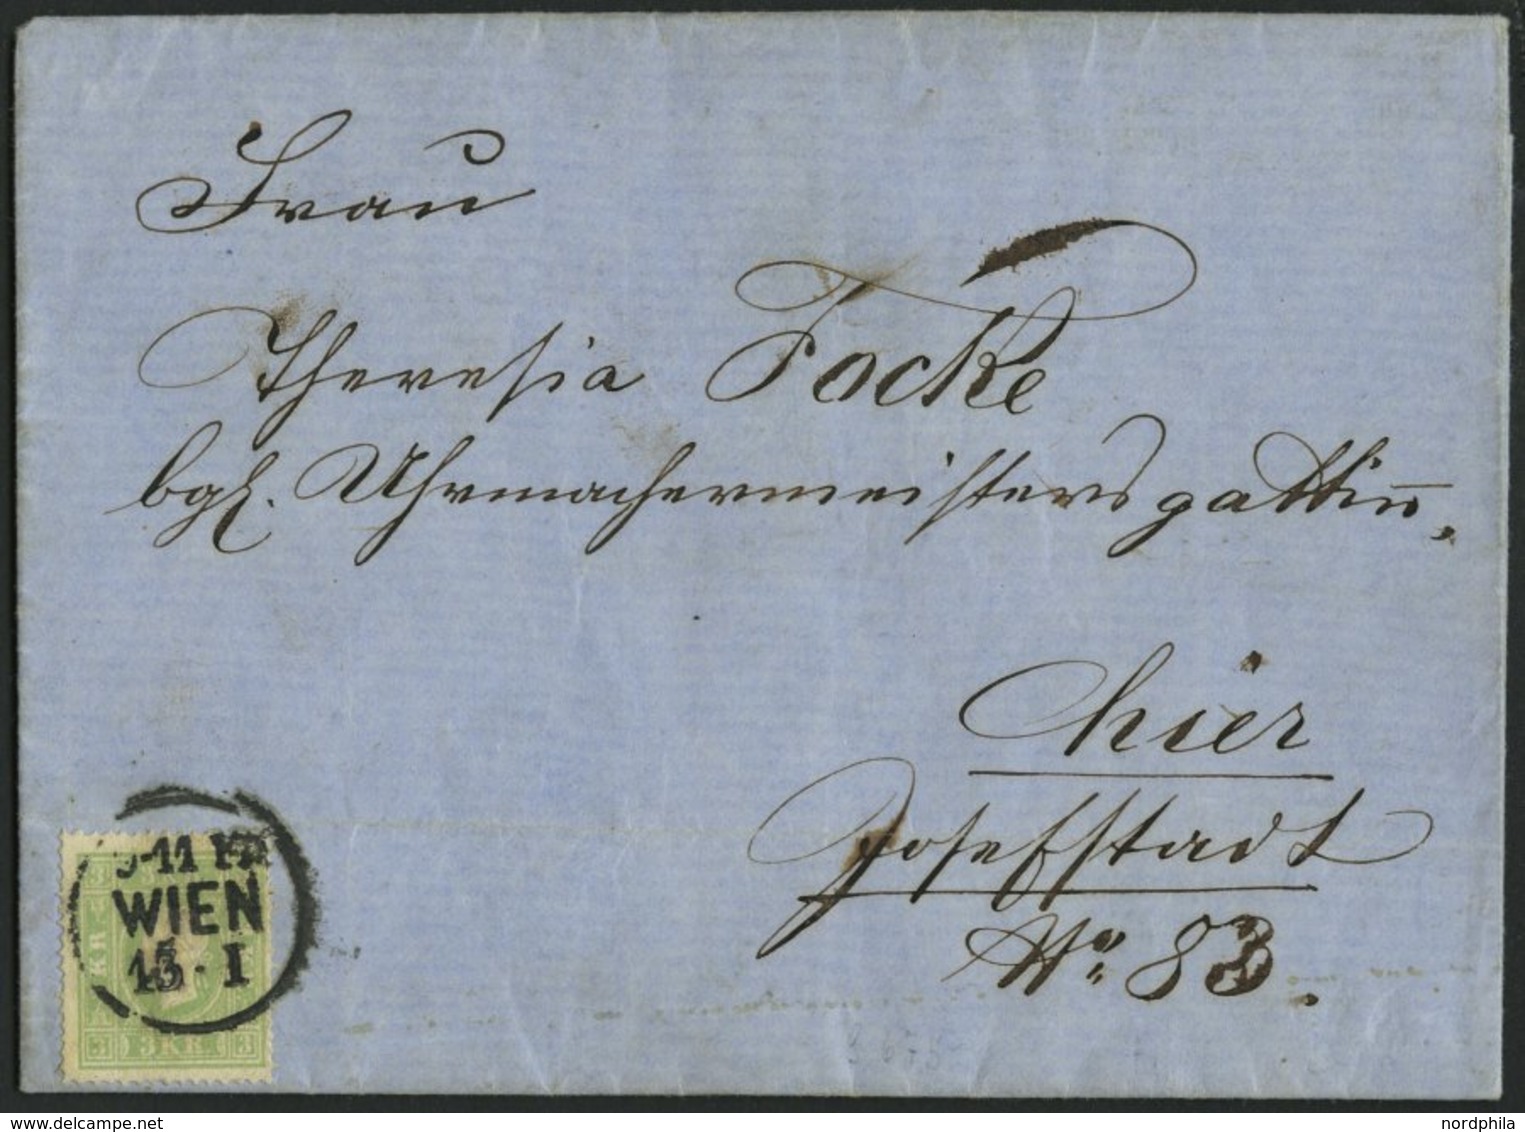 Frau
Theresia Focke
bgl. Uhrmachermeistersgattin,
hier
Josefstadt
No 83.
9-11
WIEN
13·I
KR
3 3 KR. 3
nordphila